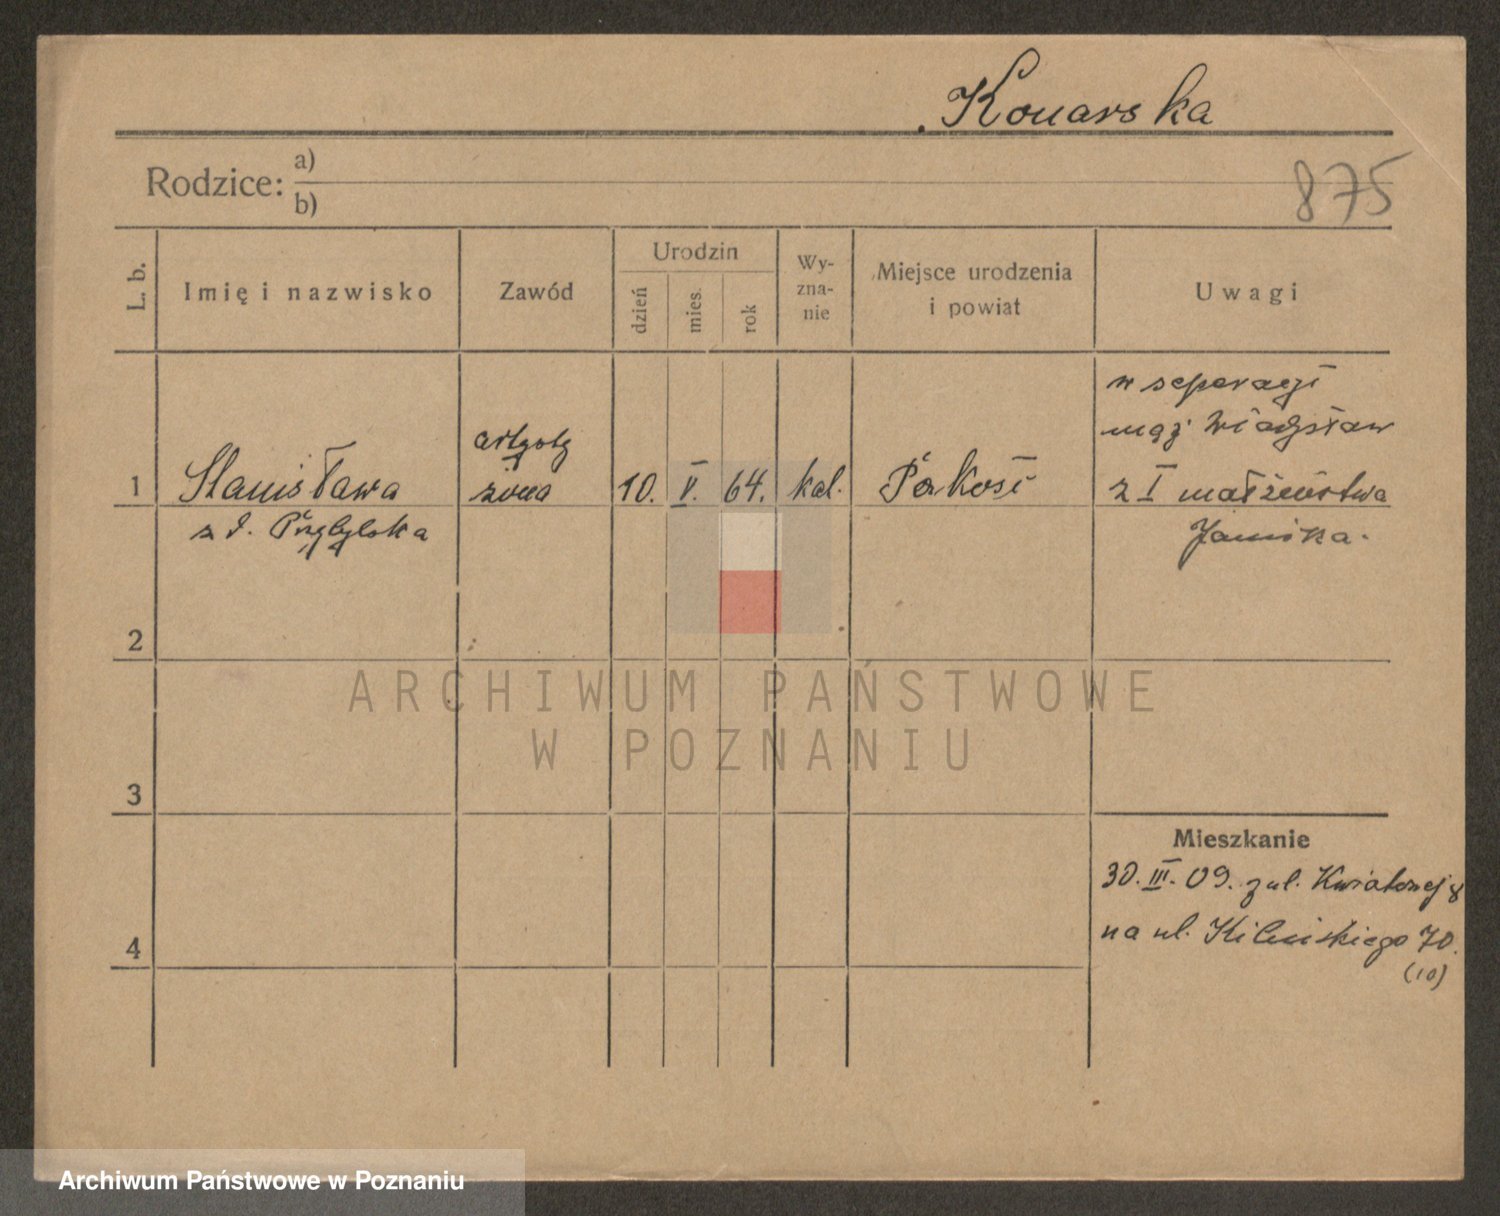 Konarska
875
Rodzice: a)
b)
L. b.
Imię i nazwisko
Zawód
Urodzin
dzień
mies.
rok
Wy-
zna-
nie
Miejsce urodzenia
i powiat
Uwagi
w separacji
mąż Władysław
z I małżeństwa
Janiska.
1
Stanisława
z d. Przybylska
artysty
żona
10.
V.
64.
kat.
Pakość
2
3
4
Mieszkanie
30. III. 09. z ul. Kwiatowej 8
na ul. Kilińskiego 70.
(10)
ARCHIWUM PAŃSTWOWE
W POZNANIU
Archiwum Państwowe w Poznaniu